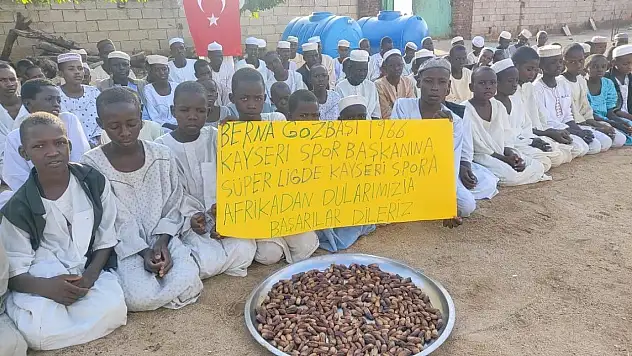 BERNA GOZBAŞI 1966
KAYSERI SPOR BAŞKANINA
SÜPER LIGDE KAYSERI SPORA
AFRIKADAN DULARIMIZLA
BAŞARILAR DILERIZ